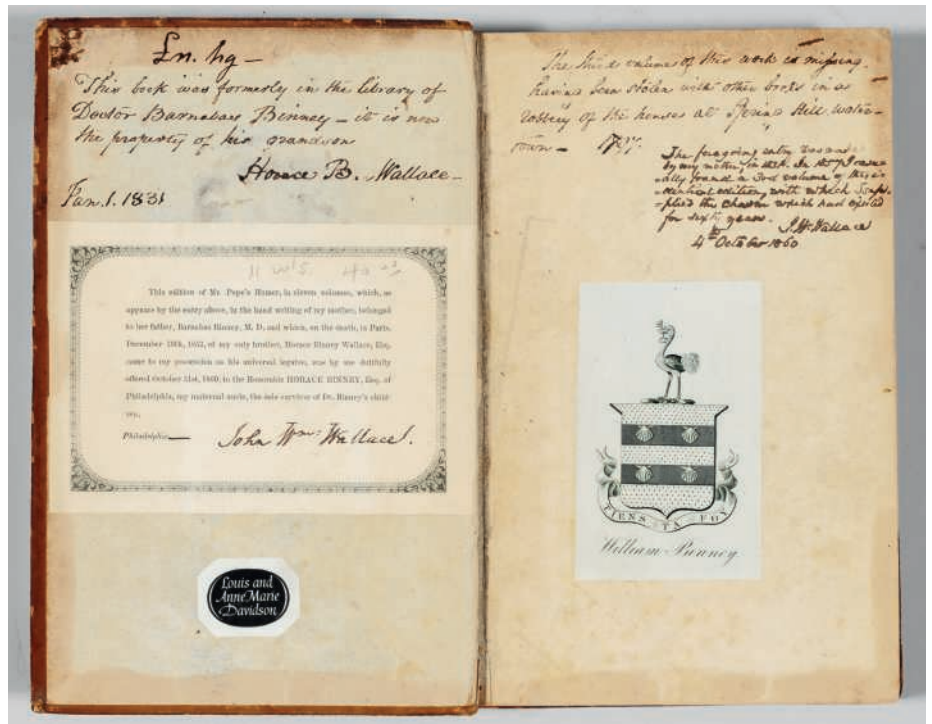 £n. hg —
This book was formerly in the library of
Doctor Barnabas Binney — it is now
the property of his grandson
Horace B. Wallace —
Jan. 1. 1831
11 vols.
This edition of Mr. Pope's Homer, in eleven volumes, which, as
appears by the entry above, in the hand writing of my mother, belonged
to her father, Barnabas Binney, M. D. and which, on the death, in Paris,
December 16th, 1852, of my only brother, Horace Binney Wallace, Esq.
came to my possession as his universal legatee, was by me dutifully
offered October 31st, 1860, to the Honorable HORACE BINNEY, Esq. of
Philadelphia, my maternal uncle, the sole survivor of Dr. Binney's child-
ren.
Philadelphia — John Wm. Wallace.
Louis and
AnneMarie
Davidson
The third volume of this work is missing -
having been stolen with other books in a
robbery of the houses at Spring Hill Water-
town —
The foregoing entry was made
by my mother, in In 1857 I casu-
ally found a 3rd volume of this i-
-dentical edition, with which I sup-
-plied the chasm which had existed
for sixty years. J. W. Wallace
4th October 1860
TIENS TA FOY
William Binney